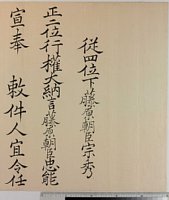 従四位下藤原朝臣宗秀
正二位行権大納言藤原朝臣忠能
宣奉　敕件人宜令任